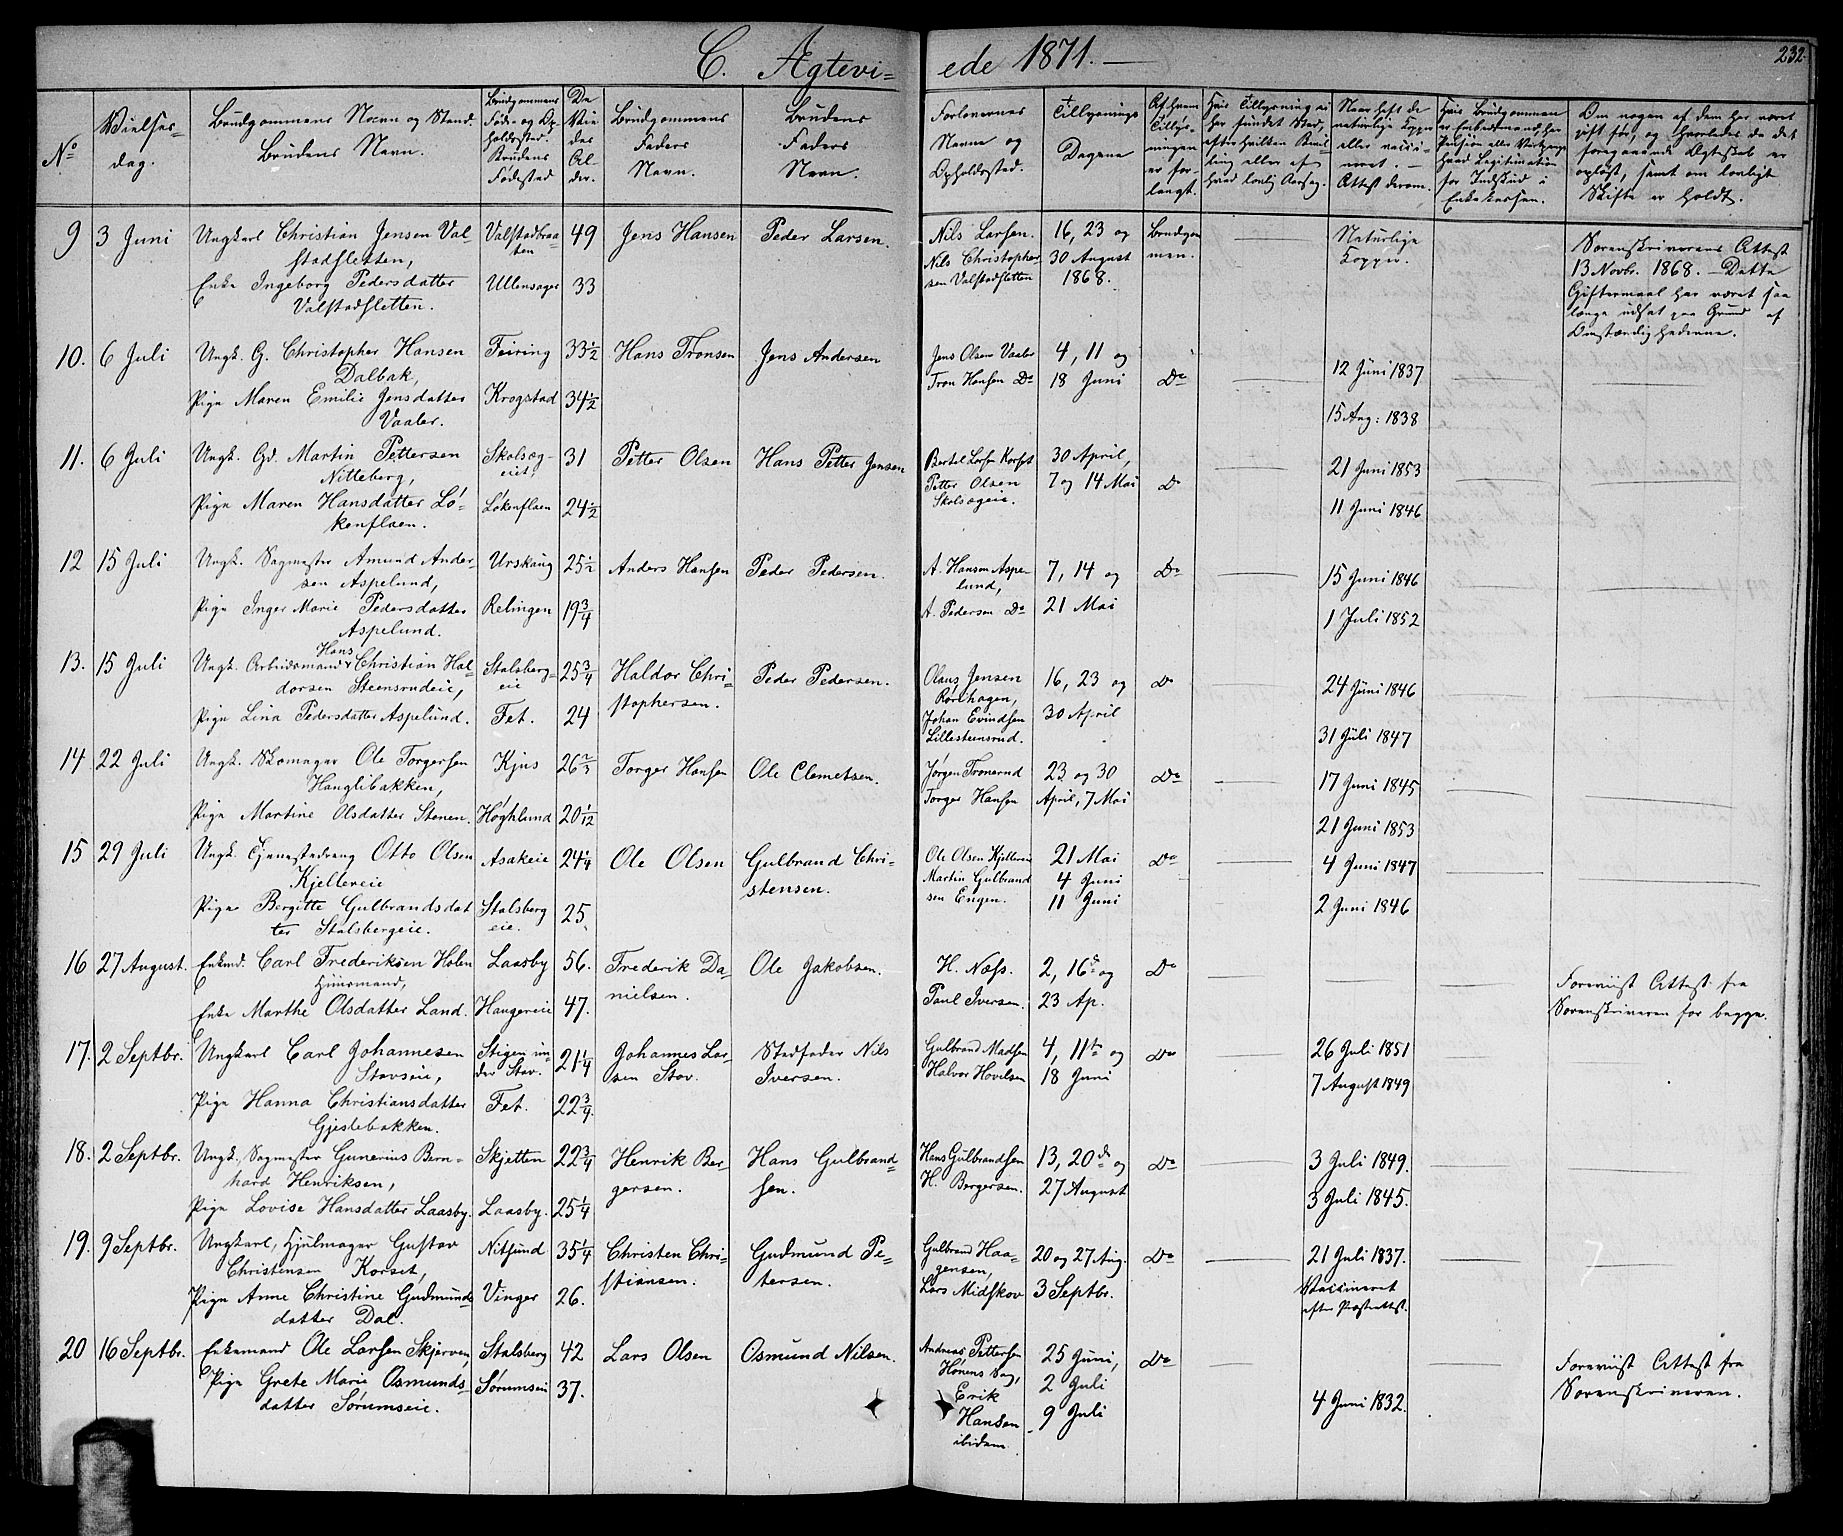 C. Ægtevi= ede 1871.
232
No
Vielses-
dag.
Brudgommens Navn og Stand.
Brudens Navn.
Brudgommens
Føde- og Op-
holdssted.
Brudens
Fødested
De
Vie
des
Al-
der.
Brudgommens
Faders
Navn.
Brudens
Faders
Navn.
Forlovernes
Navne og
Opholdssted.
Tillysnings
Dagene
Af hvem
Tillys-
ningen
er for-
langt.
Naar hæft de
naturlige Kopper
eller vacci-
neret. —
Attest derom.
Om nogen af dem har været
gift før, og hvorledes da det
foregaaende Ægteskab er
opløst, samt om lovligt
Skifte er holdt.
9 3 Juni Ungkarl Christian Jensen Val- Valstadbraa- 49 Jens Hansen Peder Larsen. Nils Larsen. 16, 23 og Brudgom Naturlige Sorenskriverens Attest
stadsletten, ten Nils Christopher- 30 August men. Kopper. 13 Novbr. 1868. — Dette
Enke Ingeborg Pedersdatter Ullensager 33 sen Valstadsletten 1868. Giftermaal har været saa
Valstadsletten. længe udsat paa Grund af
Omstændighederne.
10. 6 Juli Ungk. G. Christopher Hansen Feiring 33½ Hans Tronsen Jens Andersen Jens Olsen Vaaler 4, 11 og
Dalbak, Tron Hansen Do 18 Juni Do 12 Juni 1837
Pige Maren Emilie Jensdatter Krogstad 34½
Vaaler. 15 Aug: 1838
11. 6 Juli Ungk. Gd. Martin Pettersen Skolsøg- 31 Petter Olsen Hans Petter Jensen 30 April, 21 Juni 1853
Nitteberg, eie, Petter Olsen 7 og 14 Mai Do
Pige Maren Hansdatter Lø- Løkenflaen 24½ Skolsøgeie. 11 Juni 1846
kenflaen.
12 15 Juli Ungk. Sagmester Amund Ander- Urskoug 25½ Anders Hansen Peder Pedersen. A. Hansen Aspe- 7, 14 og Do 15 Juni 1846
sen Aspelund, lund,
Pige Inger Marie Pedersdatter Relingen 19¾ A. Pedersen Do 21 Mai 1 Juli 1852
Aspelund.
Hans
13. 15 Juli Ungk. Arbeidsmand Christian Hal- Stalsberg- 25¾ Haldor Chri- Peder Pedersen. Olaus Jensen 16, 23 og Do 24 Juni 1846
dorsen Steensrudeie, eie stophersen. Rørihagen,
Pige Lina Pedersdatter Aspelund. Fet. 24 Johan Evindsen 30 April 31 Juli 1847
Lillesteensrud.
14 22 Juli Ungk. Skomager Ole Torgersen Kjus 26⅔ Torger Hansen Ole Clemetsen. Jørgen Tronerud 23 og 30 Do 17 Juni 1845
Hanglibakken, Torger Hansen April, 7 Mai
Pige Martine Olsdatter Stenen. Høghlund 20 1/12 21 Juni 1853
15 29 Juli Ungk. Tjenestedreng Otto Olsen Asakeie 24¼ Ole Olsen Gulbrand Chri- Ole Olsen Kjellereie 21 Mai Do 4 Juni 1847
Kjellereie stensen. Martin Gulbrand 4 Juni
Pige Bergitte Gulbrandsdat Stalsberg 25 sen Engen. 11 Juni 2 Juni 1846
ter Stalsbergeie. eie.
16 27 August. Enkmd. Carl Frederiksen Holen Laasby 56. Frederik Da- Ole Jakobsen. H. Næss. 2, 16de og Do Foreviist Attest fra
Huusmand, nielsen.
Enke Marthe Olsdatter Land. Haugereie 47. Paul Iversen. 23 Ap. Sorenskriveren for begge.
17. 2 Septbr. Ungkarl Carl Johannesen Stigen un- 21¼ Johannes Lar- Stedfader Nils Gulbrand Madsen 4, 11te og Do 26 Juli 1851
Stovseie, der Stov. sen Stov. Iversen. Halvor Hovelsen 18 Juni 7 August 1849
Pige Hanna Christiansdatter Fet. 22¾
Gjestebakken.
18. 2 Septbr. Ungk., Sagmester Gunerius Bern- Skjetten 22¾ Henrik Ber- Hans Gulbrand- Hans Gulbrandsen 13, 20de og Do 3 Juli 1849.
hard Henriksen, gersen. sen. H. Bergersen. 27 August 3 Juli 1845.
Pige Lovise Hansdatter Laasby. Laasby. 25¼
19. 9 Septbr. Ungkarl, Hjulmager Gustav Nitsund 35¼ Christen Chri- Gudmund Pe- Gulbrand Haa- 20 og 27 Aug. Do 21 Juli 1837.
Christensen Korset, stiansen. tersen. gensen, Vaccineret
Pige Anne Christine Gudmunds Vinger 26. Lars Midskov 3 Septbr. efter Præsteattest.
datter Dal.
20 16 Septbr. Enkemand Ole Larsen Skjerven, Stalsberg 42 Lars Olsen Osmund Nilsen. Andreas Pettersen 25 Juni, Do Foreviist Attest fra
Pige Grete Marie Osmunds- Sørumseie 37. Hønens Sag, 2 Juli 4 Juni 1832. Sorenskriveren.
datter Sørumseie. Erik 9 Juli
Hansen
ibidem.